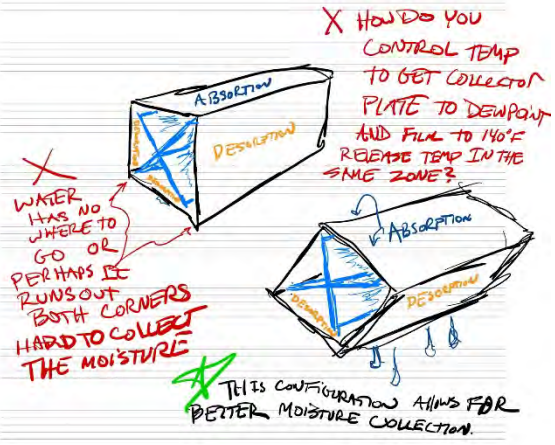 X HOW DO YOU
CONTROL TEMP
TO GET COLLECTOR
PLATE TO DEWPOINT
AND FILM TO 140°F
RELEASE TEMP IN THE
SAME ZONE?
ABSORTION
DESORPTION
DESORPTION
DESORPTION
X
WATER
HAS NO
WHERE TO
GO OR
PERHAPS IT
RUNS OUT
BOTH CORNERS
HARD TO COLLECT
THE MOISTURE
ABSORPTION
DESORPTION
DESORPTION
THIS CONFIGURATION ALLOWS FOR
BETTER MOISTURE COLLECTION.